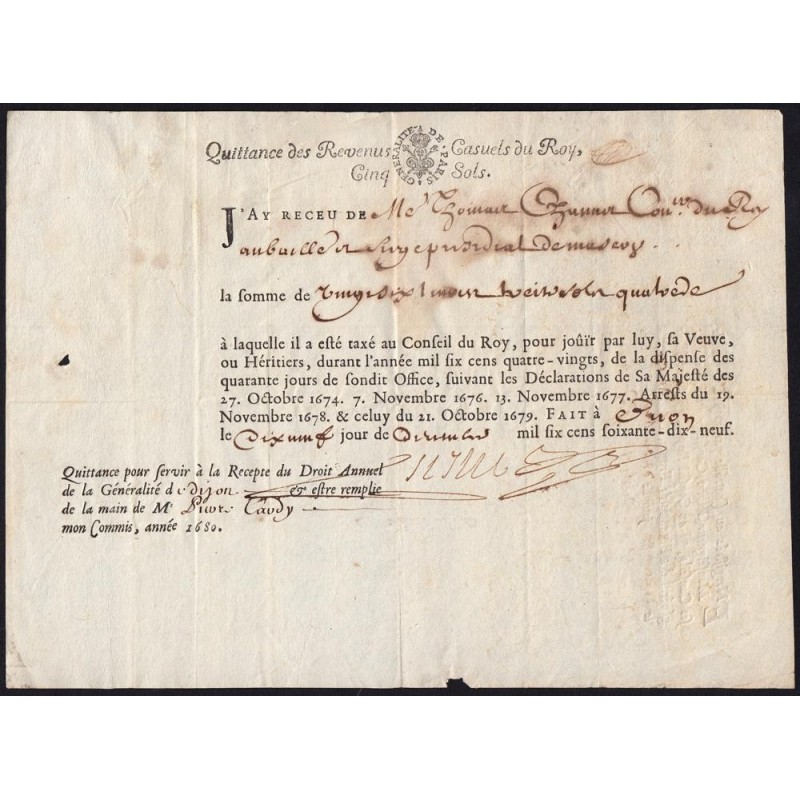 GENERALITE DE PARIS
Quittance des Revenus Casuels du Roy,
Cinq Sols.
J'AY RECEU DE Me Thomas Conr. du Roy
au bailliage
la somme de vingt six livres treize sols quatre de
à laquelle il a esté taxé au Conseil du Roy, pour joüir par luy, sa Veuve,
ou Héritiers, durant l'année mil six cens quatre-vingts, de la dispense des
quarante jours de sondit Office, suivant les Déclarations de Sa Majesté des
27. Octobre 1674. 7. Novembre 1676. 13. Novembre 1677. Arrests du 19.
Novembre 1678. & celuy du 21. Octobre 1679. FAIT à
le Dixneuf jour de Decembre mil six cens soixante-dix-neuf.
Quittance pour servir à la Recepte du Droit Annuel
de la Généralité de dijon & estre remplie
de la main de Me Pierre
mon Commis, année 1680.